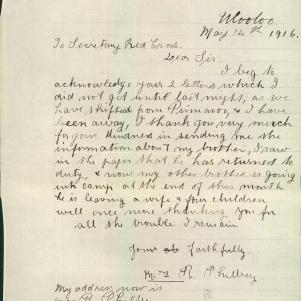 Wooloo
May 14th, 1916.
To Secretary Red Cross.
Dear Sir.
I beg to
acknowledge your 2 letters which I
did not get until last night, as we
have shifted from Pinnaroo, & I have
been away, I thank you very much
for your kindness in sending me the
information about my brother, I saw
in the paper that he has returned to
duty, & now my other brother is going
into camp at the end of this month
he is leaving a wife & four children
well once more thanking you for
all the trouble I remain
Yours faithfully
Mrs R.
My address now is
Mrs R.